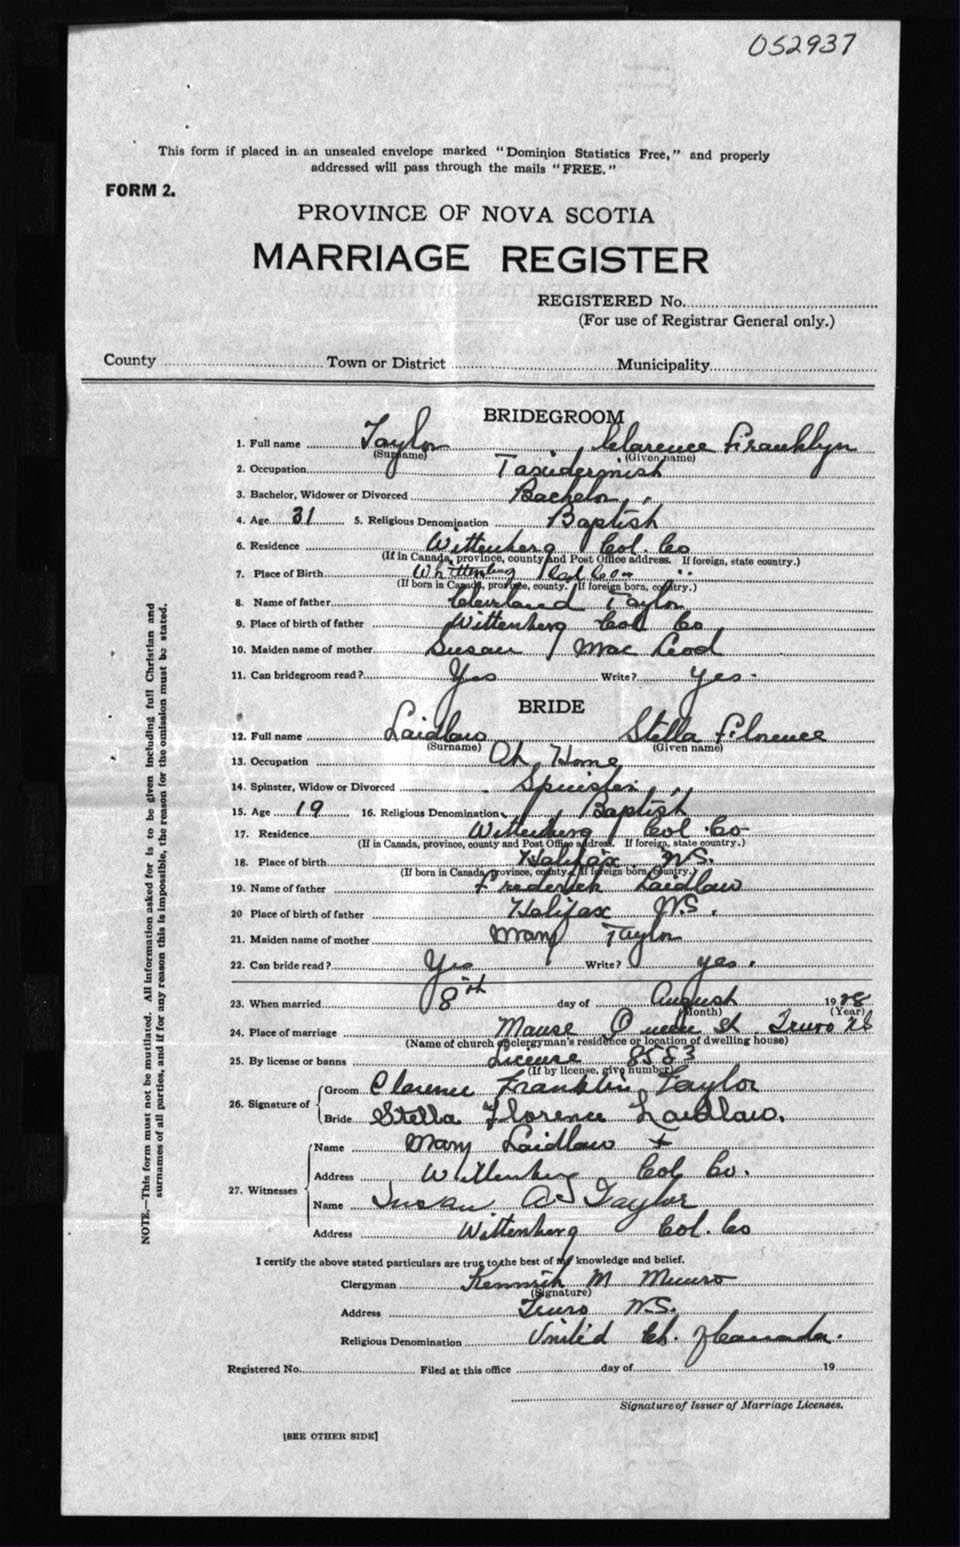 052937
This form if placed in an unsealed envelope marked "Dominion Statistics Free," and properly
addressed will pass through the mails "FREE."
FORM 2.
PROVINCE OF NOVA SCOTIA
MARRIAGE REGISTER
REGISTERED No.
(For use of Registrar General only.)
County Town or District Municipality
BRIDEGROOM
1. Full name Taylor Clarence Franklyn
(Surname) (Given name)
2. Occupation Taxidermist
3. Bachelor, Widower or Divorced Bachelor
4. Age 31 5. Religious Denomination Baptist
6. Residence Wittenberg Col. Co
(If in Canada, province, county and Post Office address. If foreign, state country.)
7. Place of Birth Wittenberg Col. Co
(If born in Canada, province, county. If foreign born, country.)
8. Name of father Cleveland Taylor
9. Place of birth of father Wittenberg Col Co
10. Maiden name of mother Susan MacLeod
11. Can bridegroom read? Yes Write? Yes
BRIDE
12. Full name Laidlaw Stella Florence
(Surname) (Given name)
13. Occupation At Home
14. Spinster, Widow or Divorced Spinster
15. Age 19 16. Religious Denomination Baptist
17. Residence Wittenberg Col. Co
(If in Canada, province, county and Post Office address. If foreign, state country.)
18. Place of birth Halifax N.S.
(If born in Canada, province, county. If foreign born, country.)
19. Name of father Frederick Laidlaw
20 Place of birth of father Halifax N.S.
21. Maiden name of mother Mary Taylor
22. Can bride read? Yes Write? yes.
23. When married 8th day of August 1928
(Month) (Year)
24. Place of marriage Manse Queen St. Truro NS
(Name of church clergyman's residence or location of dwelling house)
25. By license or banns License 8583
(If by license, give number)
26. Signature of Groom Clarence Franklin Taylor
Bride Stella Florence Laidlaw.
27. Witnesses Name Mary Laidlaw +
Address Wittenberg Col. Co.
Name Susan A Taylor
Address Wittenberg Col. Co
I certify the above stated particulars are true to the best of my knowledge and belief.
Clergyman Kenneth M Munro
(Signature)
Address Truro N.S.
Religious Denomination United Ch. of Canada.
Registered No. Filed at this office day of 19
Signature of Issuer of Marriage Licenses.
[SEE OTHER SIDE]
NOTE.—This form must not be mutilated. All information asked for is to be given including full Christian and
surnames of all parties, and if for any reason this is impossible, the reason for the omission must be stated.